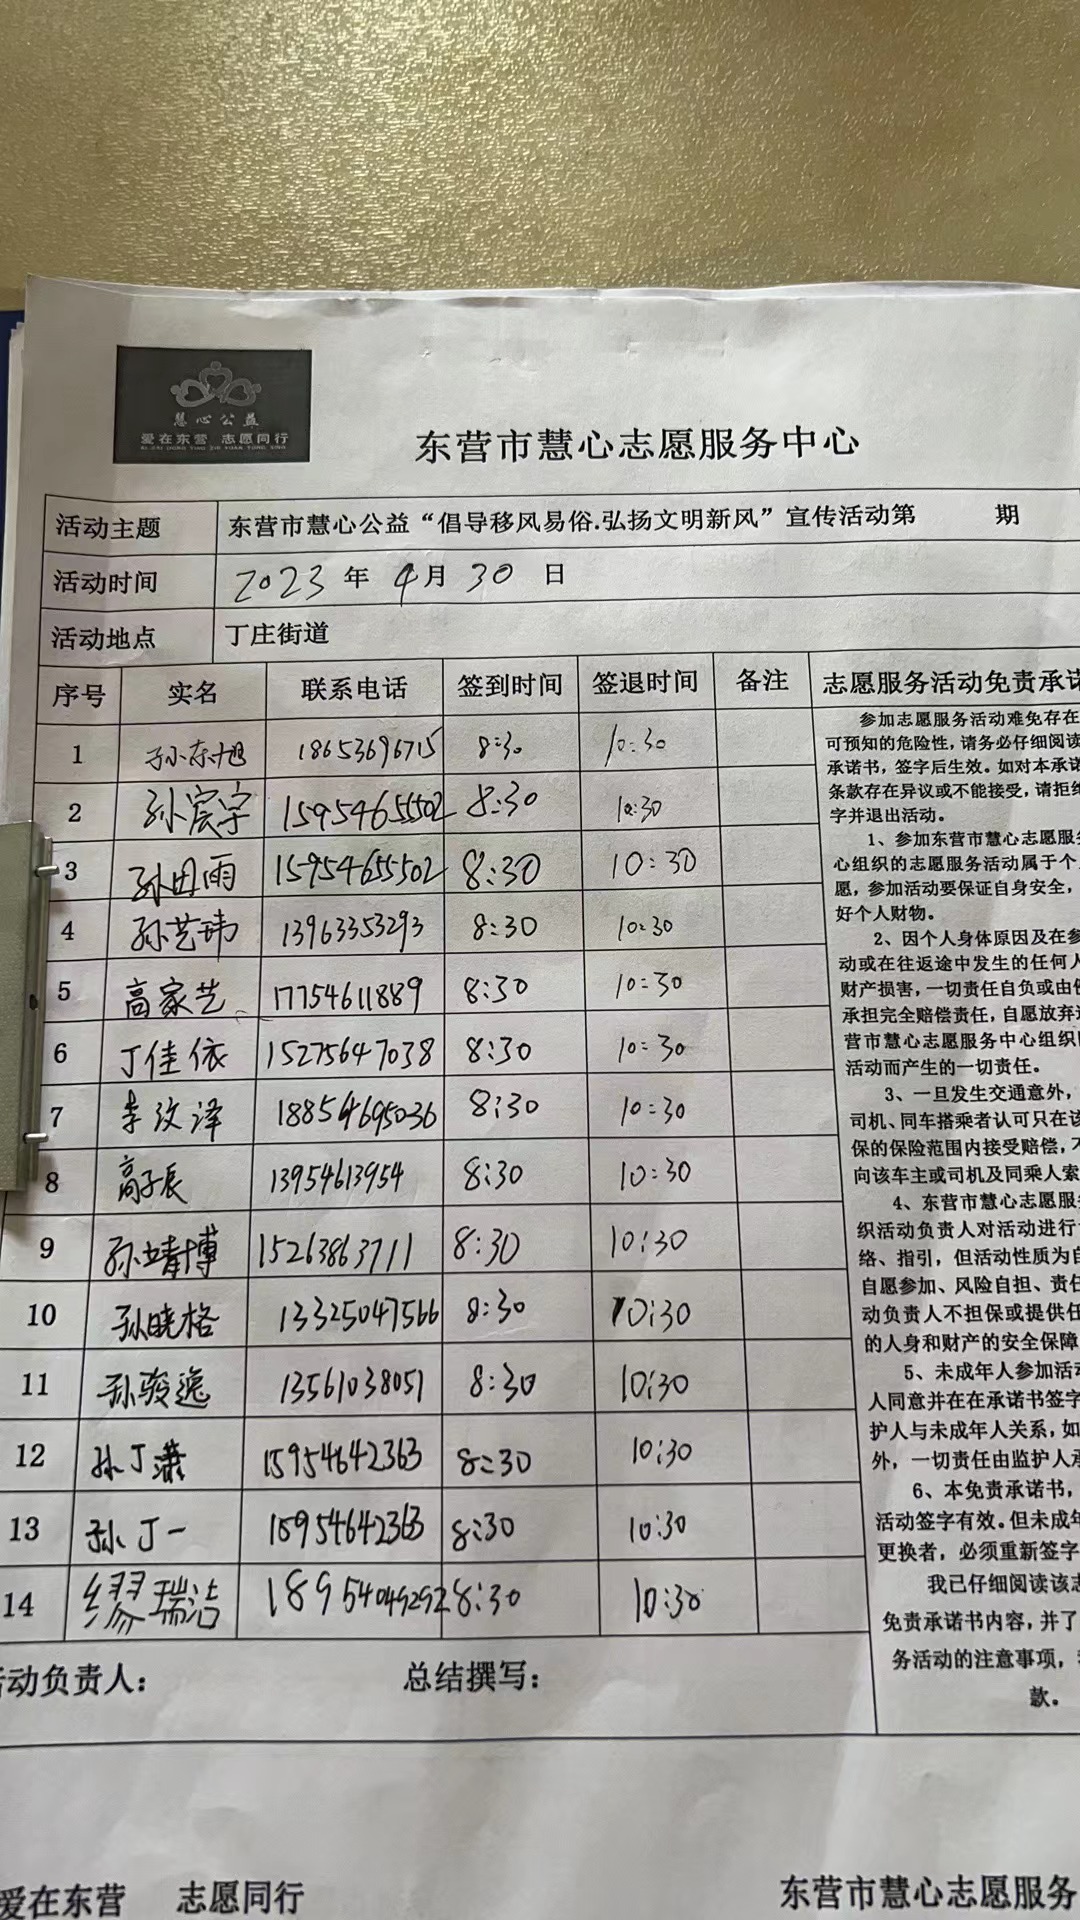 慧心公益
爱在东营 志愿同行
东营市慧心志愿服务中心
活动主题 东营市慧心公益“倡导移风易俗.弘扬文明新风”宣传活动第 期
活动时间 2023 年 4月 30 日
活动地点 丁庄街道
序号 实名 联系电话 签到时间 签退时间 备注 志愿服务活动免责承诺
1 孙东旭 18653696715 8:30 10:30
2 孙宸宇 15954655502 8:30 10:30
3 孙田雨 15954655502 8:30 10:30
4 孙艺玮 13963353293 8:30 10:30
5 高家艺 17754611889 8:30 10:30
6 丁佳依 15275647038 8:30 10:30
7 李汶泽 18854695036 8:30 10:30
8 高子辰 13954613954 8:30 10:30
9 孙靖博 15263863711 8:30 10:30
10 孙晓格 13325047566 8:30 10:30
11 孙骏逸 13561038051 8:30 10:30
12 孙丁潇 15954642363 8:30 10:30
13 孙丁一 15954642363 8:30 10:30
14 缪瑞洁 18954049292 8:30 10:30
参加志愿服务活动难免存在
可预知的危险性，请务必仔细阅读
承诺书，签字后生效。如对本承诺
条款存在异议或不能接受，请拒绝
字并退出活动。
1、参加东营市慧心志愿服务
心组织的志愿服务活动属于个
愿，参加活动要保证自身安全，
好个人财物。
2、因个人身体原因及在参
动或在往返途中发生的任何人
财产损害，一切责任自负或由
承担完全赔偿责任，自愿放弃
营市慧心志愿服务中心组织
活动而产生的一切责任。
3、一旦发生交通意外，
司机、同车搭乘者认可只在该
保的保险范围内接受赔偿，不
向该车主或司机及同乘人索
4、东营市慧心志愿服务
织活动负责人对活动进行
络、指引，但活动性质为自
自愿参加、风险自担、责任
动负责人不担保或提供任
的人身和财产的安全保障
5、未成年人参加活动
人同意并在在承诺书签字
护人与未成年人关系，如
外，一切责任由监护人承
6、本免责承诺书，
活动签字有效。但未成年
更换者，必须重新签字
我已仔细阅读该志
免责承诺书内容，并了
务活动的注意事项，
款。
活动负责人： 总结撰写：
爱在东营 志愿同行 东营市慧心志愿服务